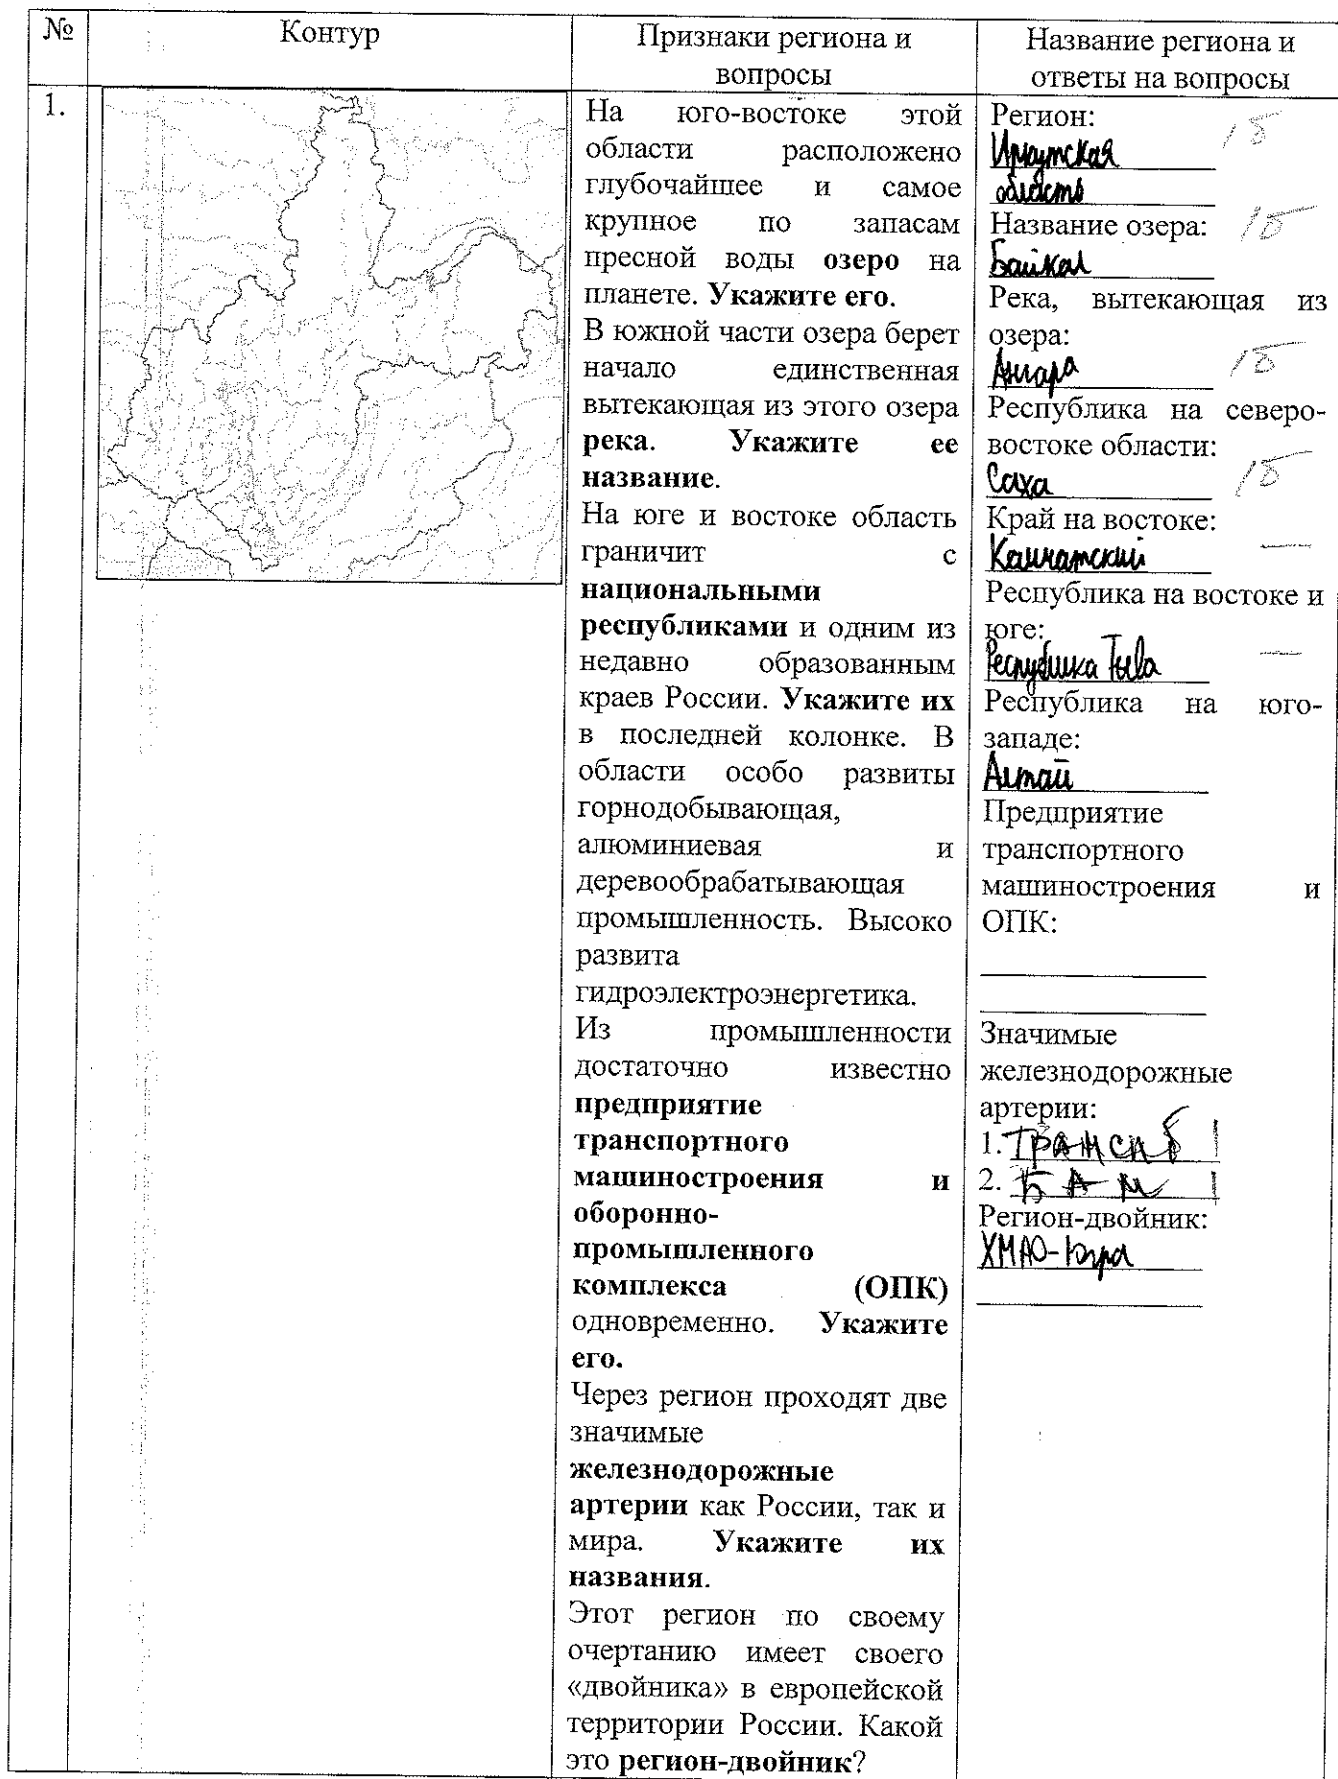 №
Контур
Признаки региона и
вопросы
Название региона и
ответы на вопросы
1.
На юго-востоке этой
области расположено
глубочайшее и самое
крупное по запасам
пресной воды озеро на
планете. Укажите его.
В южной части озера берет
начало единственная
вытекающая из этого озера
река. Укажите ее
название.
На юге и востоке область
граничит с
национальными
республиками и одним из
недавно образованным
краев России. Укажите их
в последней колонке. В
области особо развиты
горнодобывающая,
алюминиевая и
деревообрабатывающая
промышленность. Высоко
развита
гидроэлектроэнергетика.
Из промышленности
достаточно известно
предприятие
транспортного
машиностроения и
оборонно-
промышленного
комплекса (ОПК)
одновременно. Укажите
его.
Через регион проходят две
значимые
железнодорожные
артерии как России, так и
мира. Укажите их
названия.
Этот регион по своему
очертанию имеет своего
«двойника» в европейской
территории России. Какой
это регион-двойник?
Регион: 1б
Иркутская
область
Название озера: 1б
Байкал
Река, вытекающая из
озера:
Ангара 1б
Республика на северо-
востоке области:
Саха 1б
Край на востоке:
Камчатский —
Республика на востоке и
юге:
Республика Тыва —
Республика на юго-
западе:
Алтай
Предприятие
транспортного
машиностроения и
ОПК:
Значимые
железнодорожные
артерии:
1. Трансиб 1
2. БАМ 1
Регион-двойник:
ХМАО-Югра